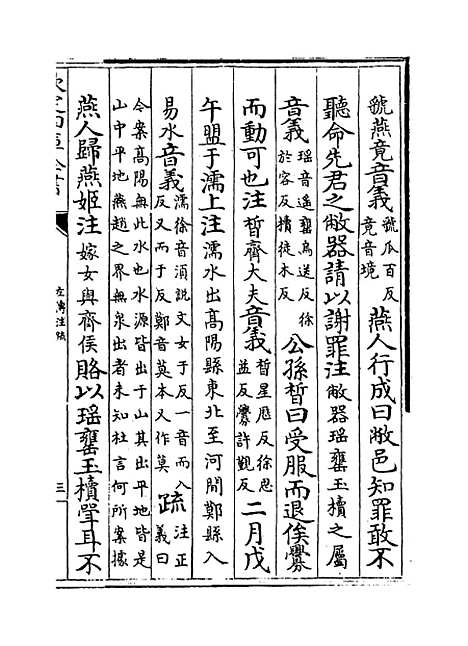 虢燕竟音義虢瓜百反竟音境燕人行成曰敝邑知罪敢不
聽命先君之敝器請以謝罪注敝器瑶罋玉櫝之屬
音義瑶音遥罋烏送反徐於容反櫝徒木反公孫晳曰受服而退俟釁
而動可也注晳齊大夫音義晳星厯反徐思益反釁許覲反二月戊
午盟于濡上注濡水出髙陽縣東北至河間鄚縣入
易水音義濡徐音須説文女于反一音而八反又而于反鄚音莫本又作莫疏注正義曰
今案髙陽無此水也水源皆出于山其出平地皆是
山中平地燕趙之界無泉出者未知杜言何所案據
燕人歸燕姬注嫁女與齊侯賂以瑶罋玉櫝斝耳不
欽定四庫全書
左傳注疏
三